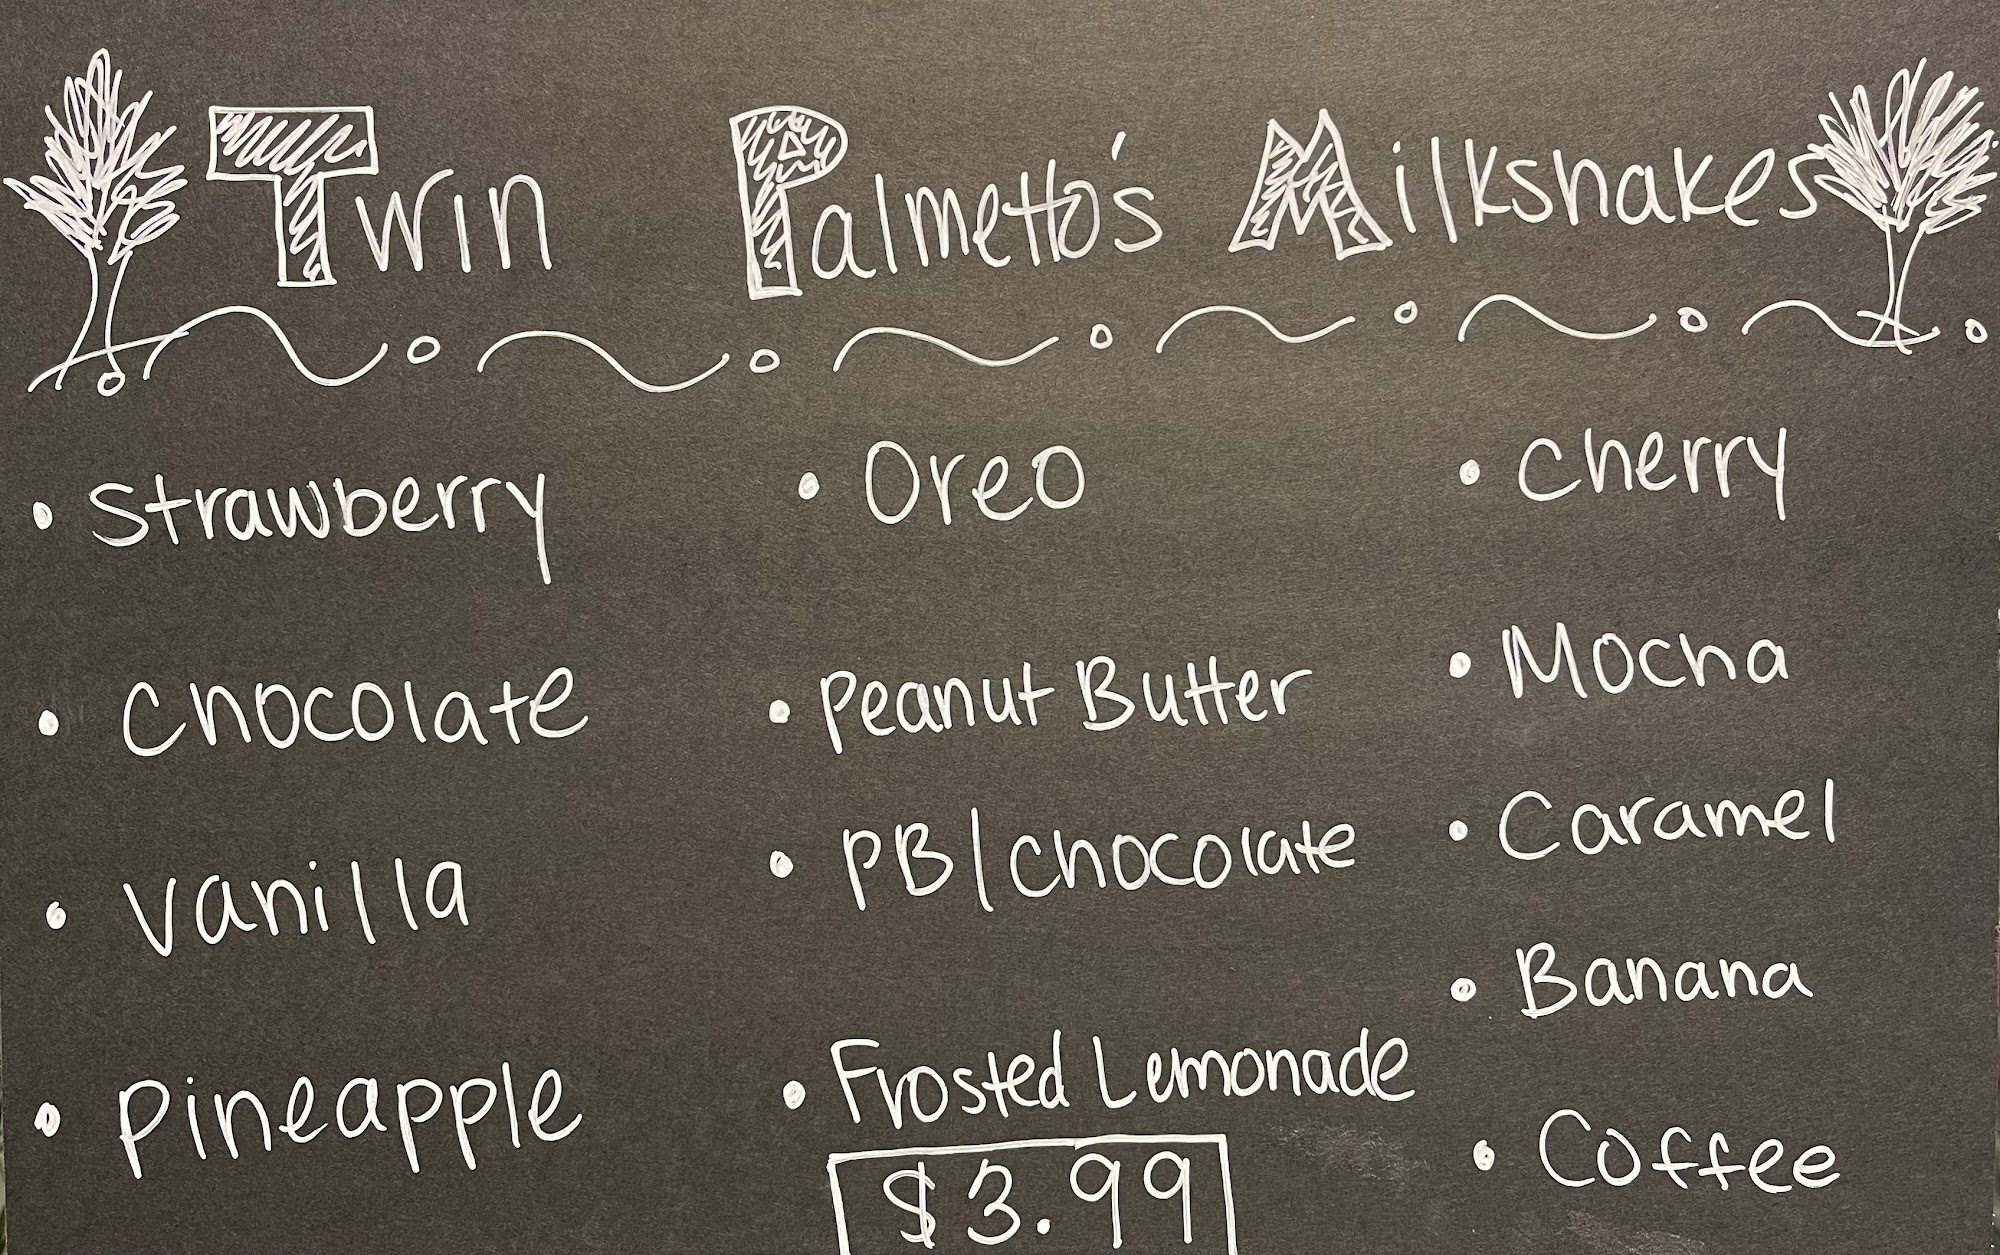 Twin Palmetto's Milkshakes
• Strawberry
• Chocolate
• Vanilla
• Pineapple
• Oreo
• Peanut Butter
• PB/Chocolate
• Frosted Lemonade
$3.99
• Cherry
• Mocha
• Caramel
• Banana
• Coffee